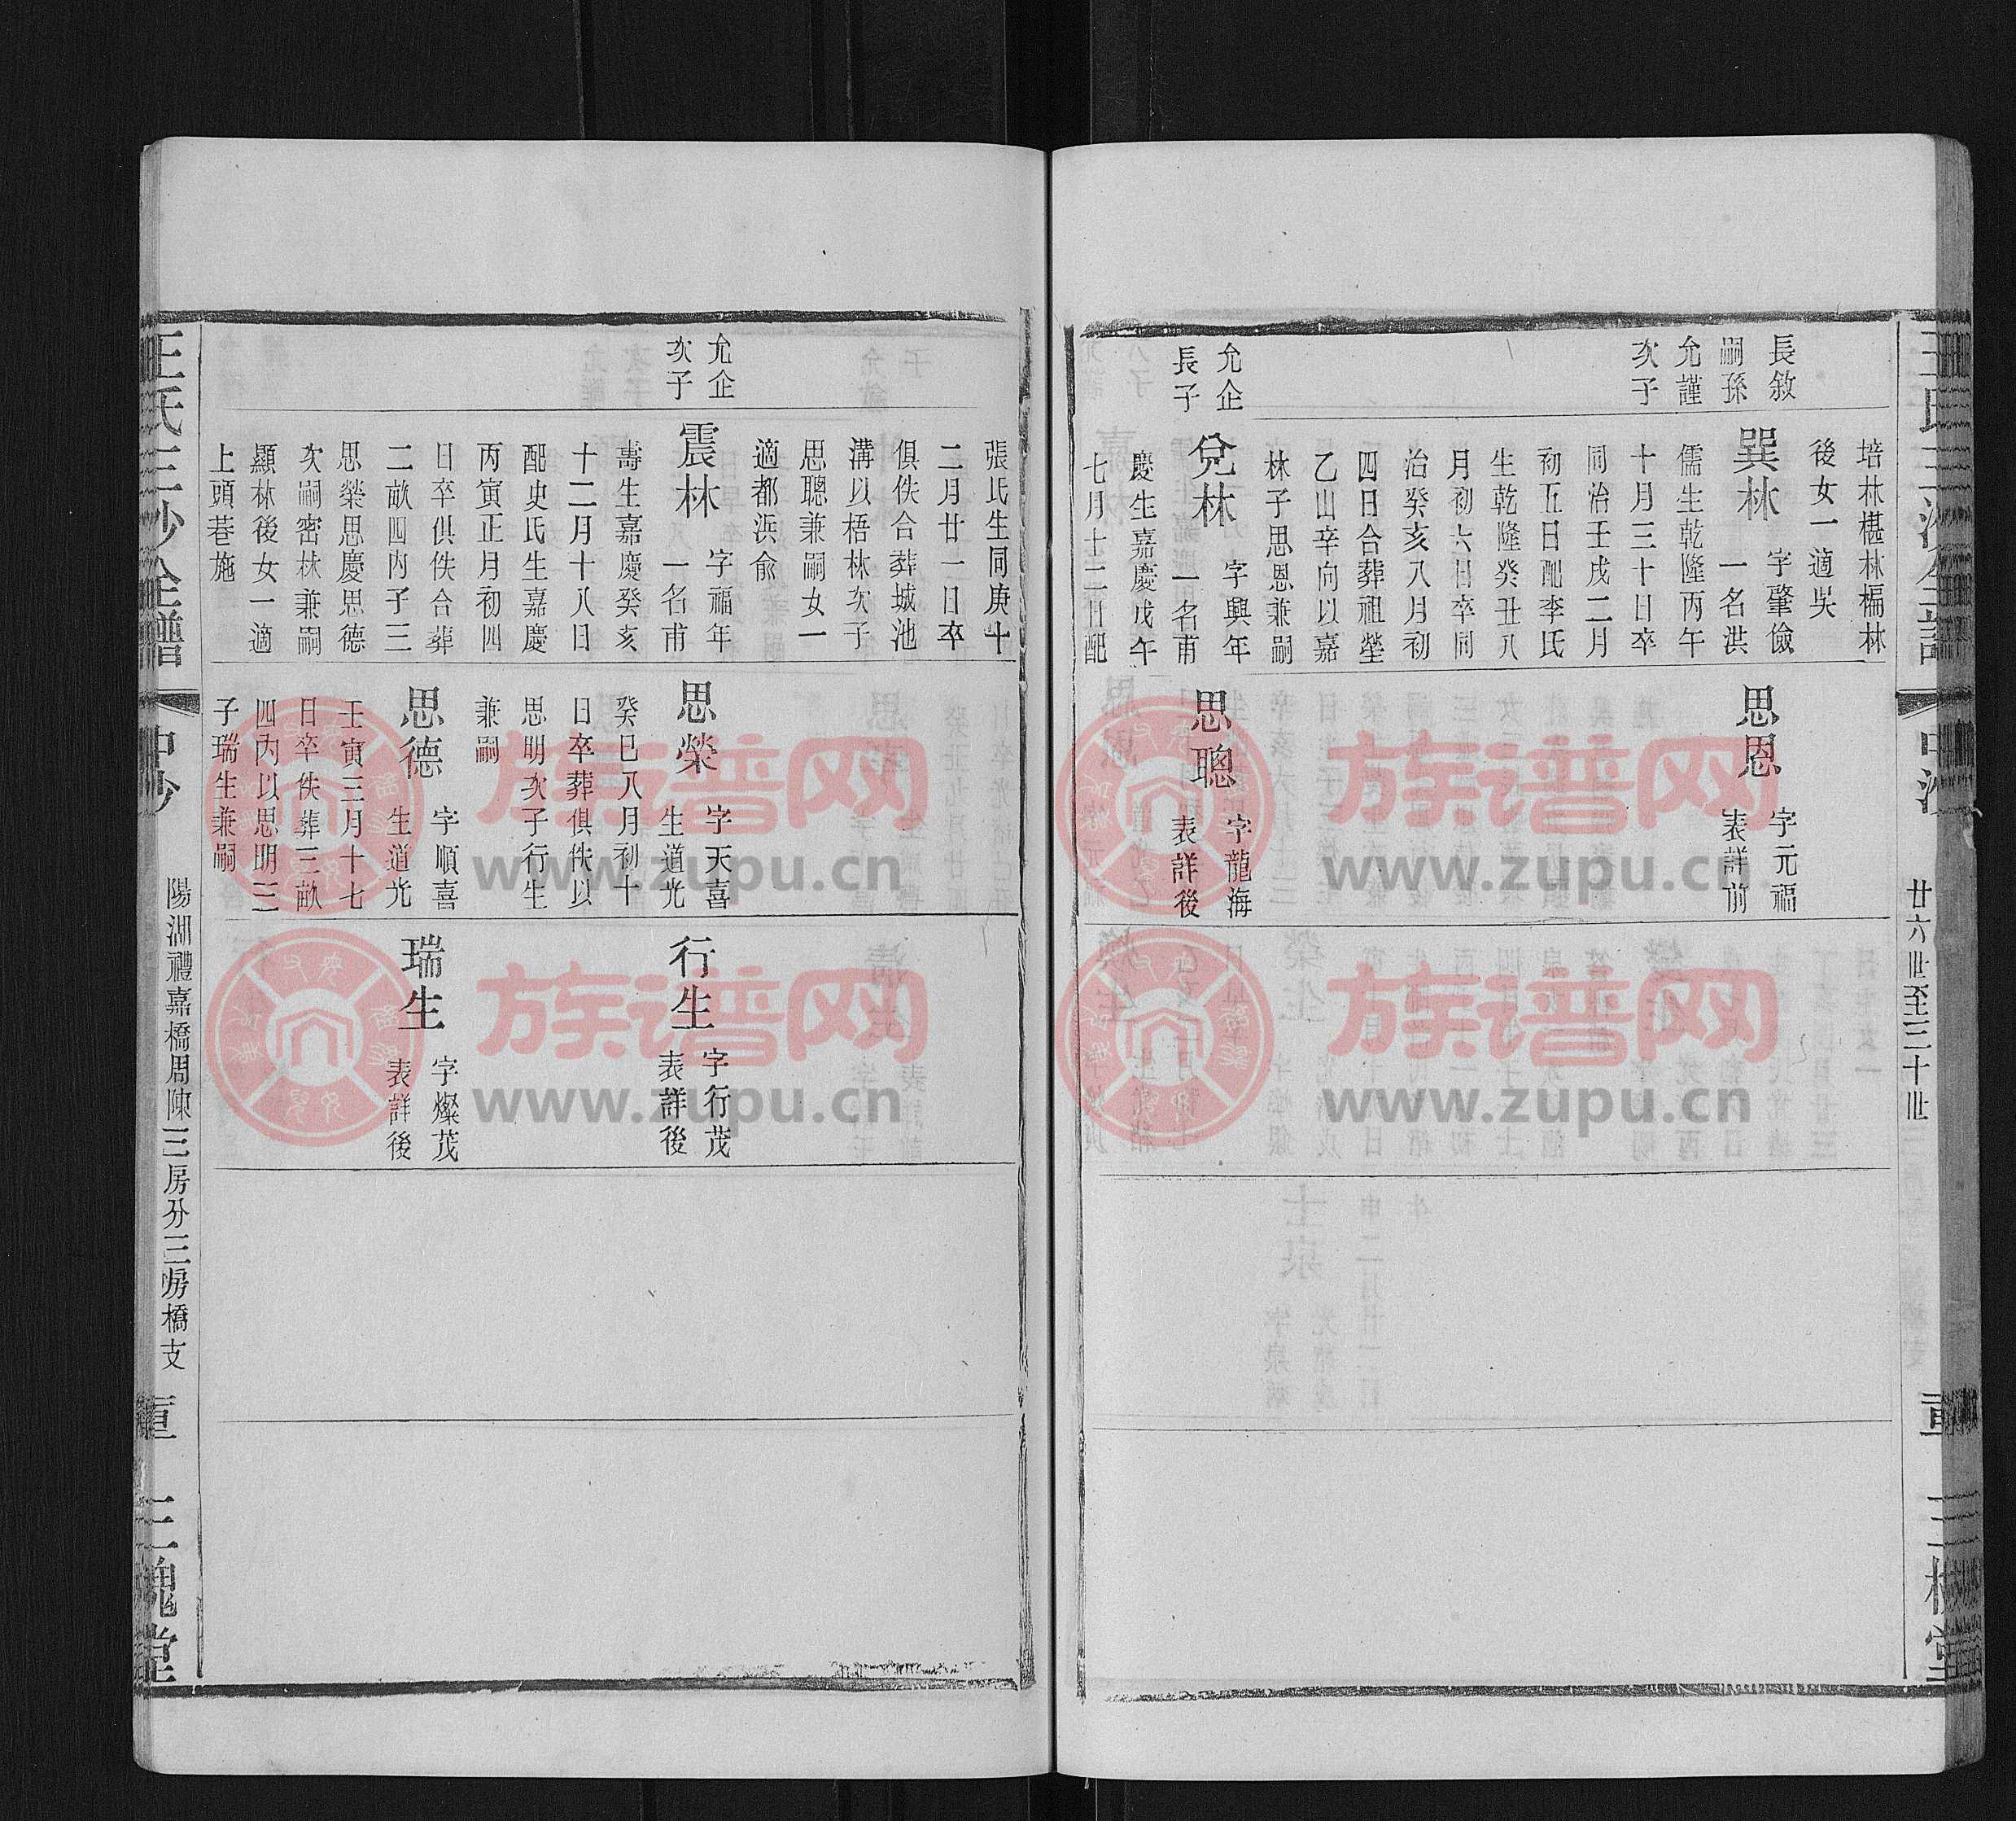 廿六世至三十世
長敘
嗣孫
允謹
次子
允企
長子
培林椹林楄林
後女一適吳
巽林
字肇儉
一名洪
儒生乾隆丙午
十月三十日卒
同治壬戌二月
初五日配李氏
生乾隆癸丑八
月初六日卒同
治癸亥八月初
四日合葬祖塋
乙山辛向以嘉
林子思恩兼嗣
兌林
字興年
一名甫
慶生嘉慶戊午
七月十二日配
思恩
字元福
表詳前
思聰
字龍海
表詳後
允企
次子
張氏生同庚十
二月廿一日卒
俱佚合葬城池
溝以梧林次子
思聰兼嗣女一
適都浜俞
震林
字福年
一名甫
壽生嘉慶癸亥
十二月十八日
配史氏生嘉慶
丙寅正月初四
日卒俱佚合葬
二畝四內子三
思榮思慶思德
次嗣密林兼嗣
顯林後女一適
上頭巷施
思榮
字天喜
生道光
癸巳八月初十
日卒葬俱佚以
思明次子行生
兼嗣
思德
字順喜
生道光
壬寅三月十七
日卒佚葬三畝
四內以思明三
子瑞生兼嗣
行生
字行茂
表詳後
瑞生
字燦茂
表詳後
王氏三沙全譜
中沙
陽湖禮嘉橋周陳三房分三房橋支
三槐堂
族谱网
www.zupu.cn
族谱网
www.zupu.cn
族谱网
www.zupu.cn
族谱网
www.zupu.cn